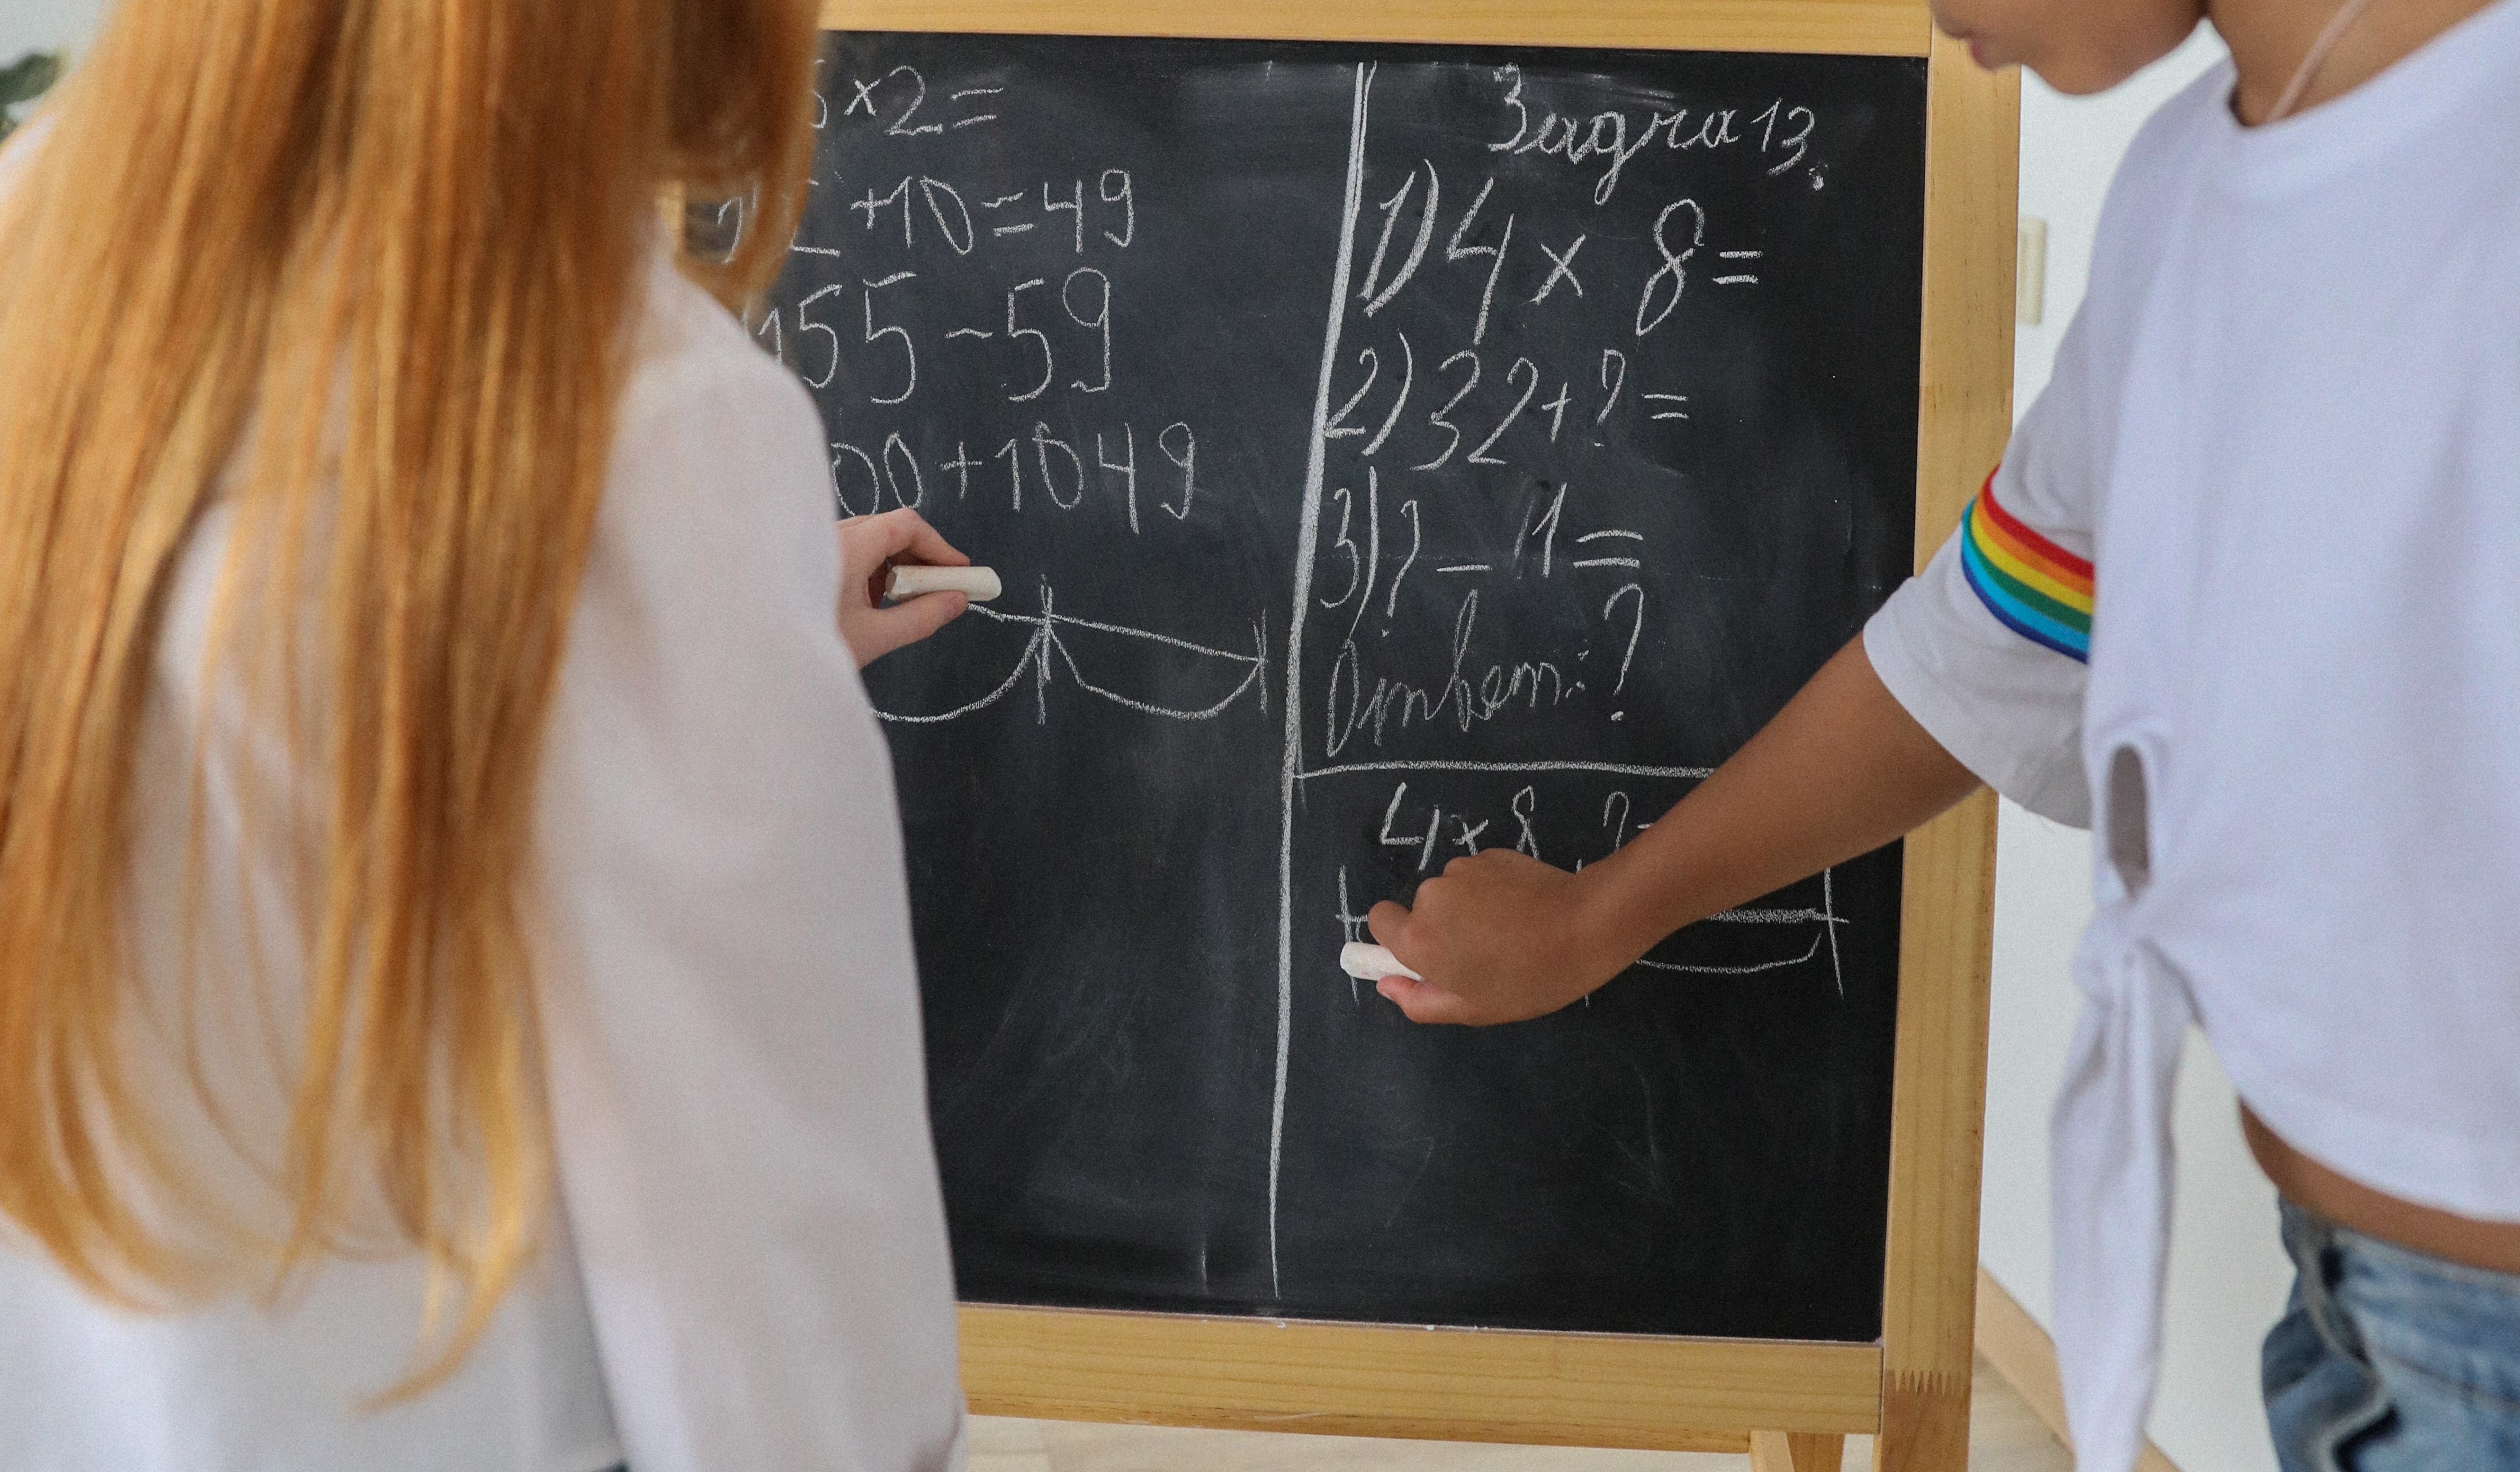 ×2=
+10=49
155-59
00+1049
Задача 13.
1) 4 × 8 =
2) 32 + ? =
3) ? - 11 =
Ответ: ?
4 × 8 ?